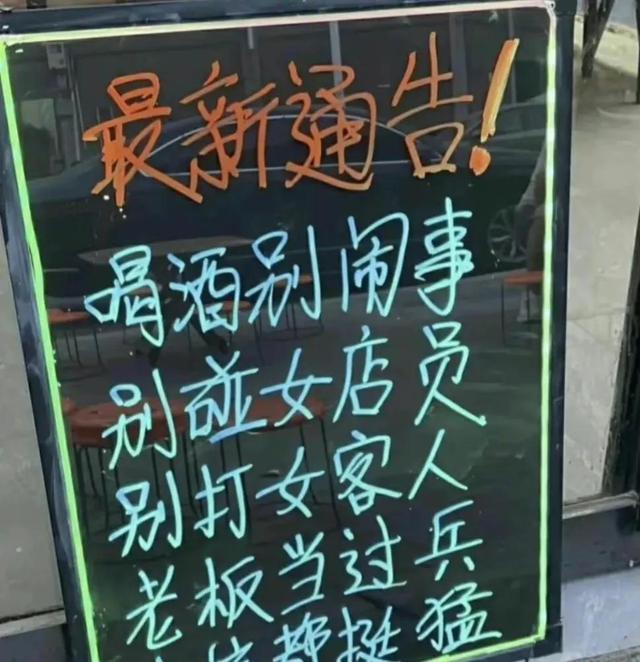 最新通告!
喝酒别闹事
别碰女店员
别打女客人
老板当过兵
都挺猛